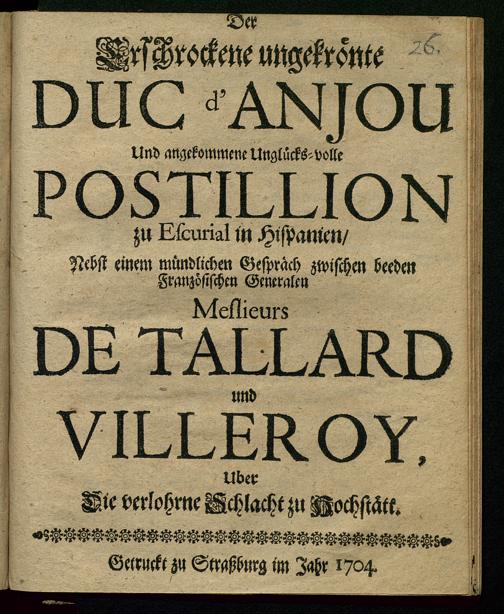 Der
26.
Erschrockene ungekrönte
DUC d'ANJOU
Und angekommene Unglücks-volle
POSTILLION
zu Escurial in Hispanien/
Nebst einem mündlichen Gespräch zwischen beeden
Französischen Generalen
Messieurs
DE TALLARD
und
VILLEROY,
Uber
Die verlohrne Schlacht zu Hochstätt.
Getruckt zu Straßburg im Jahr 1704.